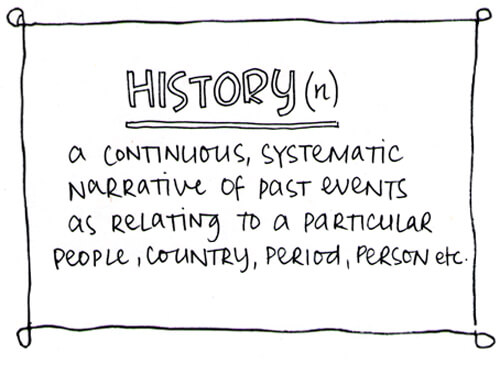 HISTORY (n)
a CONTINUOUS, SYSTEMATIC
NARRATIVE OF PAST EVENTS
AS RELATING TO A PARTICULAR
PEOPLE, COUNTRY, PERIOD, PERSON etc.